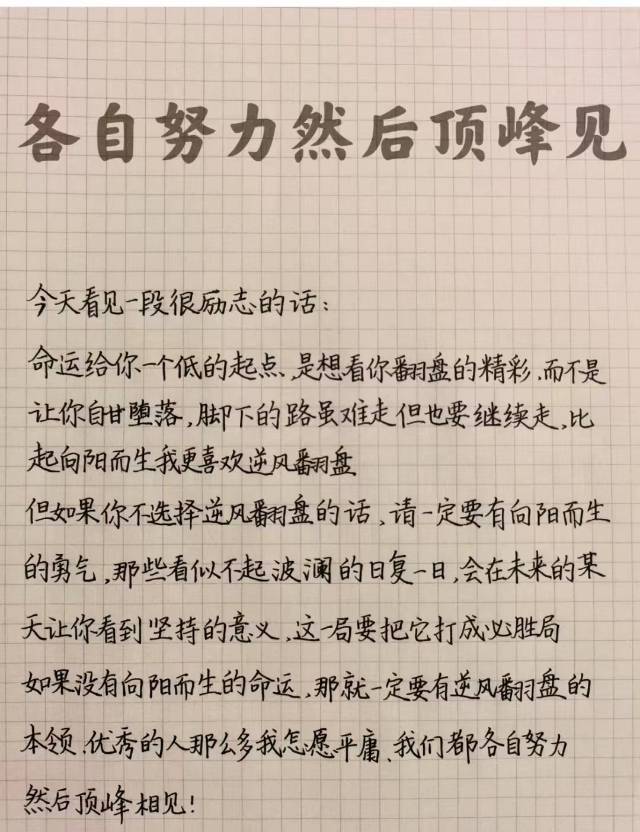 各自努力然后顶峰见
今天看见一段很励志的话：
命运给你一个低的起点，是想看你翻盘的精彩，而不是
让你自甘堕落，脚下的路虽难走但也要继续走，比
起向阳而生我更喜欢逆风翻盘
但如果你不选择逆风翻盘的话，请一定要有向阳而生
的勇气，那些看似不起波澜的日复一日，会在未来的某
天让你看到坚持的意义，这一局要把它打成必胜局
如果没有向阳而生的命运，那就一定要有逆风翻盘的
本领，优秀的人那么多我怎愿平庸、我们都各自努力
然后顶峰相见！